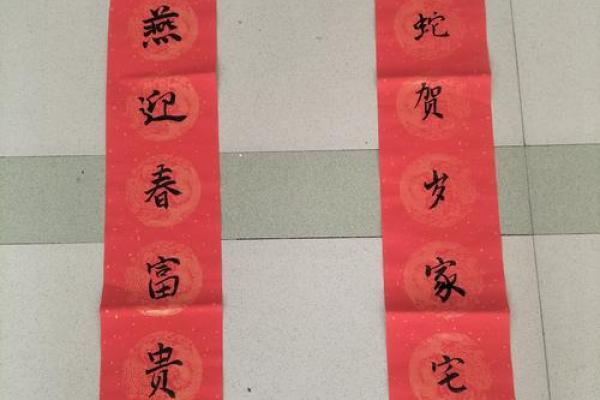 蛇贺岁家宅
燕迎春富贵